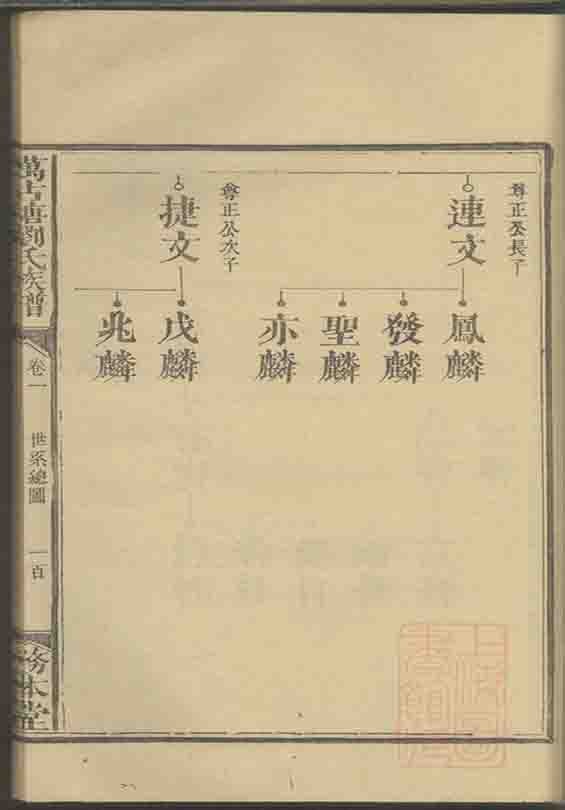 尊正公長子
連文
鳳麟
發麟
聖麟
亦麟
尊正公次子
捷文
戊麟
兆麟
萬古塘劉氏族譜
卷一
世系總圖
一百
務本堂
上海圖書館藏